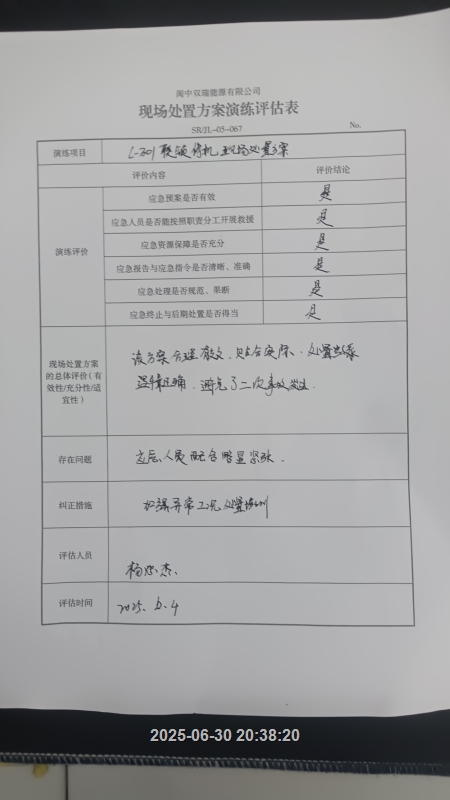 阆中双瑞能源有限公司
现场处置方案演练评估表
SR/JL-05-067
No.
演练项目
C-301联锁停机现场处置方案
评价内容
评价结论
演练评价
应急预案是否有效
是
应急人员是否能按照职责分工开展救援
是
应急资源保障是否充分
是
应急报告与应急指令是否清晰、准确
是
应急处理是否规范、果断
是
应急终止与后期处置是否得当
是
现场处置方案
的总体评价(有
效性/充分性/适
宜性)
该方案合理有效,贴合实际,处置
正确,避免了二次事故发生.
存在问题
应急人员配合略显紧张.
纠正措施
加强异常工况处置培训
评估人员
杨 杰.
评估时间
2025. 6. 4
2025-06-30 20:38:20